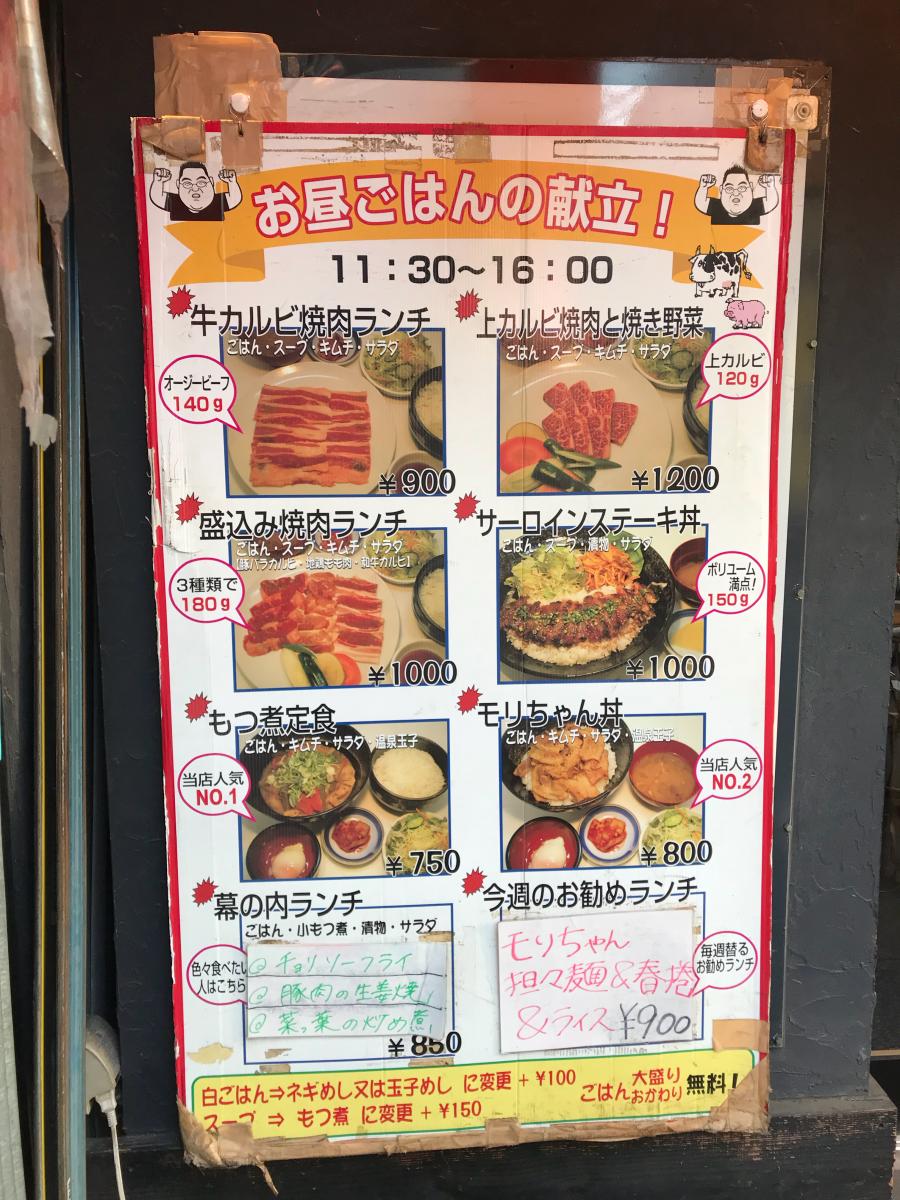 お昼ごはんの献立！
11：30〜16：00
牛カルビ焼肉ランチ
ごはん・スープ・キムチ・サラダ
オージービーフ
140g
¥900
上カルビ焼肉と焼き野菜
ごはん・スープ・キムチ・サラダ
上カルビ
120g
¥1200
盛込み焼肉ランチ
ごはん・スープ・キムチ・サラダ
【豚バラカルビ・地鶏もも肉・和牛カルビ】
3種類で
180g
¥1000
サーロインステーキ丼
ごはん・スープ・漬物・サラダ
ボリューム
満点！
150g
¥1000
もつ煮定食
ごはん・キムチ・サラダ・温泉玉子
当店人気
NO.1
¥750
モリちゃん丼
ごはん・キムチ・サラダ・温泉玉子
当店人気
NO.2
¥800
幕の内ランチ
ごはん・小もつ煮・漬物・サラダ
色々食べたい
人はこちら
@ チョリソーフライ
@ 豚肉の生姜焼
@ 菜っ葉の炒め煮
¥850
今週のお勧めランチ
モリちゃん
担々麺&春捲
&ライス ¥900
毎週替る
お勧めランチ
白ごはん⇒ネギめし又は玉子めし に変更 + ¥100
スープ ⇒ もつ煮 に変更 + ¥150
大盛り
ごはんおかわり 無料！